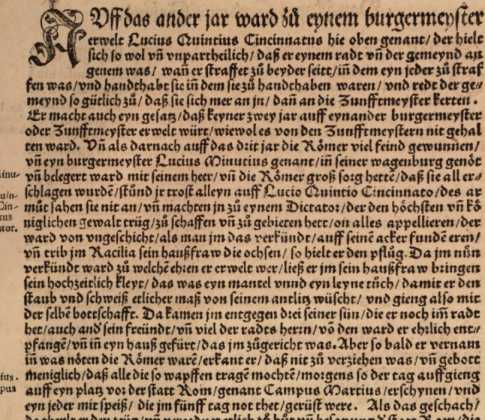 AUff das ander jar ward zů eynem burgermeyster
erwelt Lucius Quintius Cincinnatus hie oben genant/ der hielt
sich so wol vñ vnpartheilich/ daß er eynem radt vñ der gemeynd an
genem was/ wañ er straffet zů beyder seitt/ in̄ dem eyn jeder zů straf
fen was/ vnd handthabt sie in̄ dem sie zů handthaben waren/ vnd redt der ge=
meynd so gütlich zů/ daß sie sich mer an jn/ dañ an die Zunfftmeyster kerten.
Er macht auch eyn gesatz/ daß keyner zwey jar auff eynander burgermeyster
oder Zunfftmeyster erwelt würt/ wiewol es von den Zunfftmeystern nit gehal
ten ward. Vñ als darnach auff das drit jar die Römer viel feind gewunnen/
vñ eyn burgermeyster Lucius Minutius genant/ in̄ seiner wagenburg genöt
vñ belegert ward mit seinem heer/ vñ die Römer groß sorg hettē/ daß sie all er=
schlagen wurdē/ stůnd jr trost alleyn auff Lucio Quintio Cincinnato/ des ar
můt sahen sie nit an/ vñ machten jn zů eynem Dictator/ der den höchsten vñ kö
niglichen gewalt trůg/ zů schaffen vñ zů gebieten hett/ on alles appellieren/ der
ward von vngeschicht/ als man jm das verkündt/ auff seinē acker fundē eren/
vñ trib jm Racilia sein haußfraw die ochsen/ so hielt er den pflůg. Da jm nůn
verkündt ward zů welchē ehren er erwelt wer/ ließ er jm sein haußfraw bringen
sein hochzeitlich kleyt/ das was eyn mantel vnnd eyn leyne tůch/ damit er den
staub vnd schweiß etlicher maß von seinem antlitz wüscht/ vnd gieng also mit
der selbē bottschafft. Da kamen jm entgegen drei seiner sün/ die er noch im̄ radt
het/ auch and' sein freündt/ vñ viel der radts herrn/ vō den ward er ehrlich ent=
pfangē/ vñ in̄ eyn hauß gefürt/ das jm zůgericht was. Aber so bald er vernam
in̄ was nöten die Römer warē/ erkant er/ daß nit zů verziehen was/ vñ gebott
meniglich/ daß alle die so wapffen tragē mochtē/ morgens so der tag auff gieng
auff eyn platz vor der statt Rom/ genant Campus Martius/ erschynen/ vnd
eyn jeder mit speiß/ die jm fünff tag not thet/ gerüst were. Als das geschach/